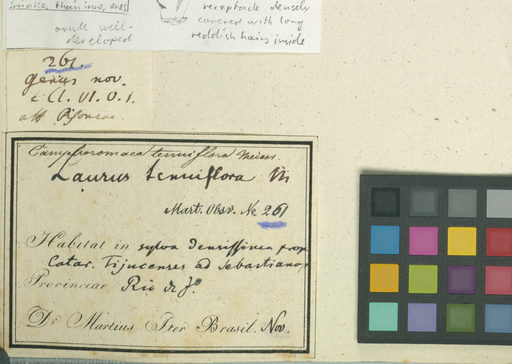 smaller than inner ones
ovule well-
developed
receptacle densely
covered with long
reddish hairs inside
261.
genus nov.
e Cl. VI. O. 1.
aff.
Camphoromoea tenuiflora Meisn.
Laurus tenuiflora M
Mart. Obsv. No 261
Habitat in sylva densissima prope
Catar. Tijucenses ad Sebastianop
Provinciae Rio de J°
Dr Martius Iter Brasil. Nov.